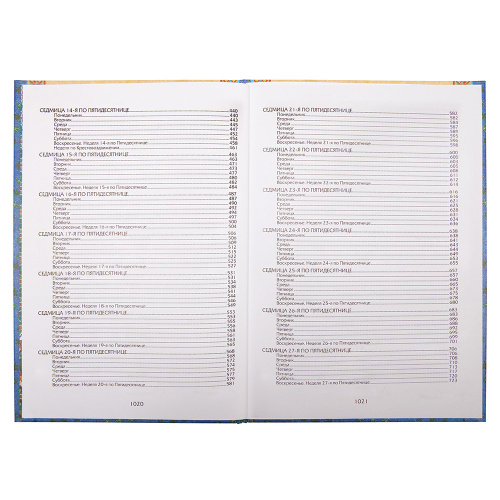 СЕДМИЦА 14-Я ПО ПЯТИДЕСЯТНИЦЕ 440
Понедельник 440
Вторник 443
Среда 445
Четверг 447
Пятница 452
Суббота 454
Воскресенье: Неделя 14-я по Пятидесятнице 458
Неделя по Крестовоздвижении 461
СЕДМИЦА 15-Я ПО ПЯТИДЕСЯТНИЦЕ 463
Понедельник 463
Вторник 471
Среда 473
Четверг 477
Пятница 480
Суббота 482
Воскресенье: Неделя 15-я по Пятидесятнице 484
СЕДМИЦА 16-Я ПО ПЯТИДЕСЯТНИЦЕ 487
Понедельник 487
Вторник 490
Среда 492
Четверг 494
Пятница 497
Суббота 500
Воскресенье: Неделя 16-я по Пятидесятнице 504
СЕДМИЦА 17-Я ПО ПЯТИДЕСЯТНИЦЕ 506
Понедельник 506
Вторник 509
Среда 512
Четверг 515
Пятница 522
Суббота 525
Воскресенье: Неделя 17-я по Пятидесятнице 527
СЕДМИЦА 18-Я ПО ПЯТИДЕСЯТНИЦЕ 531
Понедельник 531
Вторник 534
Среда 538
Четверг 541
Пятница 544
Суббота 546
Воскресенье: Неделя 18-я по Пятидесятнице 549
СЕДМИЦА 19-Я ПО ПЯТИДЕСЯТНИЦЕ 553
Понедельник 553
Вторник 555
Среда 556
Четверг 558
Пятница 561
Суббота 563
Воскресенье: Неделя 19-я по Пятидесятнице 565
СЕДМИЦА 20-Я ПО ПЯТИДЕСЯТНИЦЕ 568
Понедельник 568
Вторник 572
Среда 574
Четверг 575
Пятница 577
Суббота 579
Воскресенье: Неделя 20-я по Пятидесятнице 581
1020
СЕДМИЦА 21-Я ПО ПЯТИДЕСЯТНИЦЕ
Понедельник 582
Вторник 582
Среда 584
Четверг 587
Пятница 589
Суббота 595
Воскресенье: Неделя 21-я по Пятидесятнице 596
СЕДМИЦА 22-Я ПО ПЯТИДЕСЯТНИЦЕ 600
Понедельник 600
Вторник 603
Среда 605
Четверг 608
Пятница 611
Суббота 612
Воскресенье: Неделя 22-я по Пятидесятнице 613
СЕДМИЦА 23-Я ПО ПЯТИДЕСЯТНИЦЕ 616
Понедельник 616
Вторник 621
Среда 625
Четверг 628
Пятница 631
Суббота 634
Воскресенье: Неделя 23-я по Пятидесятнице 636
СЕДМИЦА 24-Я ПО ПЯТИДЕСЯТНИЦЕ 638
Понедельник 638
Вторник 641
Среда 643
Четверг 647
Пятница 649
Суббота 653
Воскресенье: Неделя 24-я по Пятидесятнице 655
СЕДМИЦА 25-Я ПО ПЯТИДЕСЯТНИЦЕ 657
Понедельник 657
Вторник 660
Среда 665
Четверг 673
Пятница 675
Суббота 678
Воскресенье: Неделя 25-я по Пятидесятнице 680
СЕДМИЦА 26-Я ПО ПЯТИДЕСЯТНИЦЕ 683
Понедельник 683
Вторник 686
Среда 688
Четверг 692
Пятница 695
Суббота 699
Воскресенье: Неделя 26-я по Пятидесятнице 701
СЕДМИЦА 27-Я ПО ПЯТИДЕСЯТНИЦЕ 706
Понедельник 706
Вторник 708
Среда 710
Четверг 713
Пятница 717
Суббота 720
Воскресенье: Неделя 27-я по Пятидесятнице 723
1021